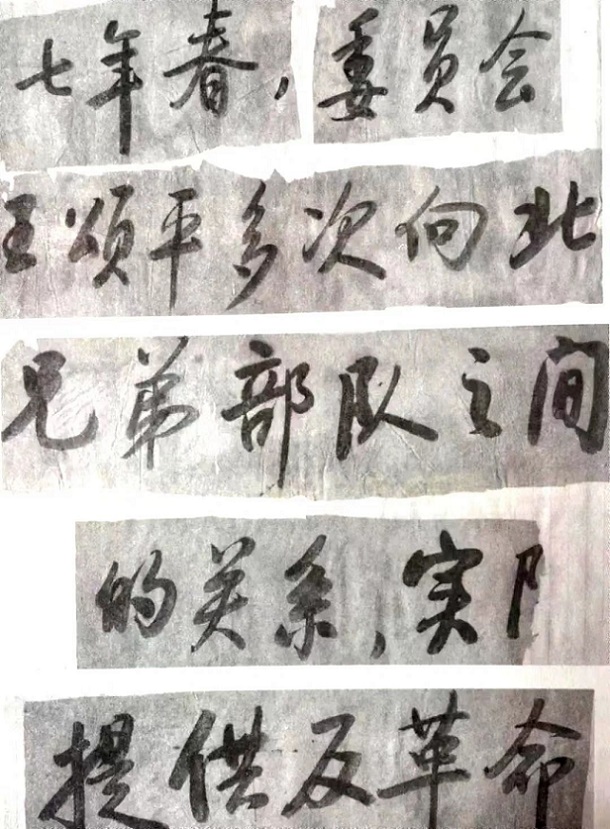 七年春，委员会
王颂平多次向北
兄弟部队之间
的关系，实
提供反革命